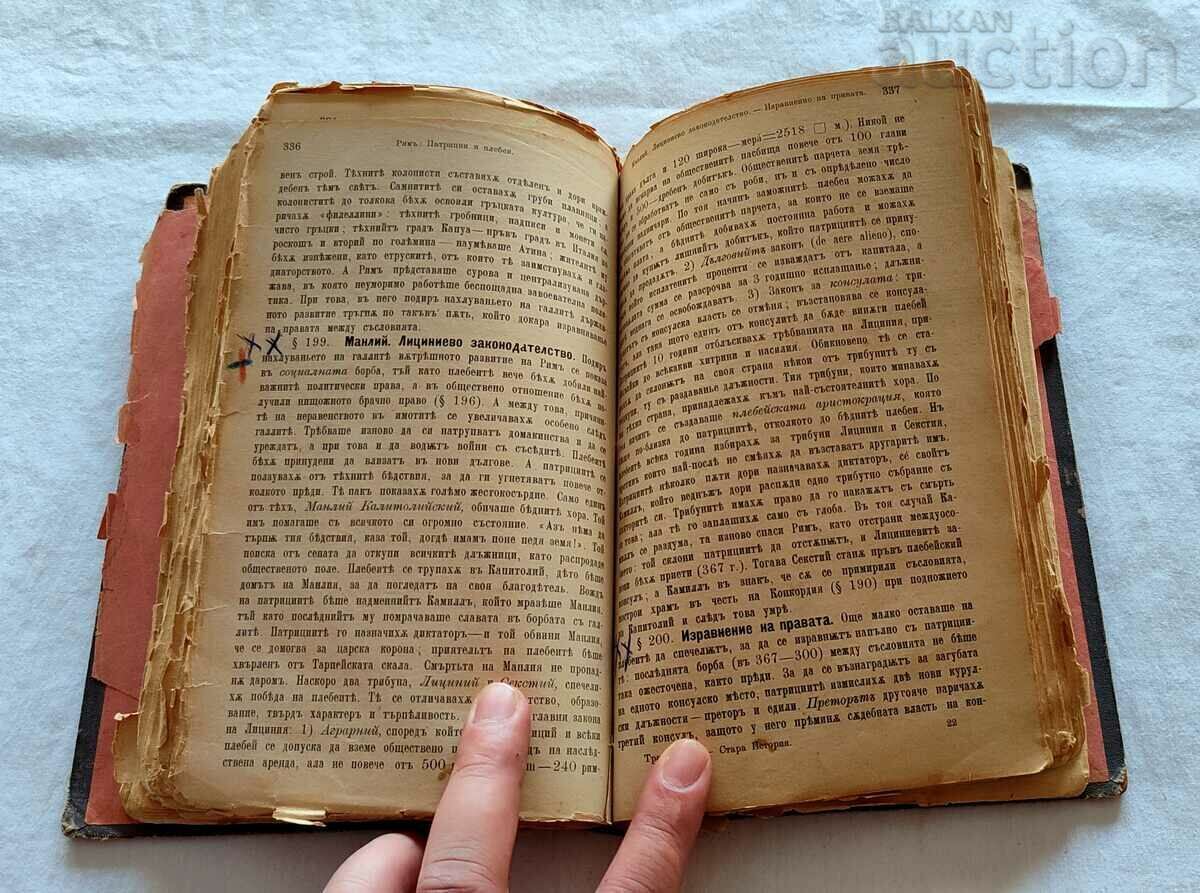 BALKAN
auction
336
Римъ: Патриции и плебеи.
венъ строй. Тѣхнитѣ колонисти съставяхѫ отдѣленъ и дори враж-
дебенъ тѣмъ свѣтъ. Самнититѣ си оставахѫ груби планинци, а
колониститѣ до толкова бѣхѫ освоили гръцката културѫ, че ги на-
ричахѫ «филеллини»: тѣхнитѣ гробници, надписи и монети сѫ
чисто гръцки; тѣхнийтъ градъ Капуа — пръвъ градъ въ Италия по
роскошъ и вторий по голѣмина — наумѣваше Атина; жителитѣ му
бѣхѫ изнѣжени, като етрускитѣ, отъ които тѣ заимствувахѫ и гла-
диаторството. А Римъ прѣдставяше сурова и централизувана дър-
жава, въ която неуморимо работѣше беспощадна завоевателна поли-
тика. При това, въ него подиръ нахлуваньето на галлитѣ държав-
ното развитие тръгнѫ по такъвъ пѫть, който докара изравнованье
на правата между съсловията.
§ 199. Манлий. Лициниево законодателство. Подиръ
нахлуваньето на галлитѣ вѫтрѣшното развитие на Римъ се показа
въ социалната борба, тъй като плебеитѣ вече бѣхѫ добили най-
важнитѣ политически права, а въ обществено отношение бѣхѫ по-
лучили нищожното брачно право (§ 196). А между това, причини-
тѣ на неравенството въ имотитѣ се увеличавахѫ особено слѣдъ
галлитѣ. Трѣбваше изново да си натрупватъ домакинства и да се
уреждатъ, а при това и да водѭтъ войни съ съсѣдитѣ. Плебеитѣ
бѣхѫ принудени да влизатъ въ нови дългове. А патрициитѣ се
ползувахѫ отъ тѣхнитѣ бѣдствия, за да ги угнетяватъ повече от-
колкото прѣди. Тѣ пакъ показахѫ голѣмо жестокосърдие. Само единъ
отъ тѣхъ, Манлий Капитолийский, обичаше бѣднитѣ хора. Той
имъ помагаше съ всичкото си огромно състояние. «Азъ нѣма да
търпѭ тия бѣдствия, каза той, догдѣ имамъ поне педя земя!». Той
поиска отъ сената да откупи всичкитѣ длъжници, като распродаде
общественото поле. Плебеитѣ се трупахѫ въ Капитолий, дѣто бѣше
домътъ на Манлия, за да погледатъ на своя благодѣтель. Вождъ
на патрициитѣ бѣше надменнийтъ Камиллъ, който мразѣше Манлия,
тъй като послѣднийтъ му помрачаваше славата въ борбата съ гал-
литѣ. Патрициитѣ го назначихѫ диктаторъ — и той обвини Манлия,
че се домогва за царска корона; приятельтъ на плебеитѣ бѣше
хвърленъ отъ Тарпейската скала. Смъртьта на Манлия не пропад-
нѫ даромъ. Наскоро два трибуна, Лициний и Секстий, спечели-
хѫ побѣда на плебеитѣ. Тѣ се отличавахѫ ство, образо-
вание, твърдъ характеръ и търпѣливость. главни закона
на Лициния: 1) Аграрний, споредъ който ций и всѣки
плебей се допуска да вземе обществено дъ на наслѣд-
ствена аренда, ала не повече отъ 500 — 240 рим-
Манлий. Лициниево законодателство. — Изравнение на правата. 337
дълга и 120 широка — мера = 2518 □ м.). Никой не
на общественитѣ пасбища повече отъ 100 глави
500 — дребенъ добитъкъ. Общественитѣ парчета земя трѣ-
обработватъ не само съ роби, нъ и съ опрѣдѣлено число
надничари. По тоя начинъ заможнитѣ плебеи можахѫ да
отъ общественитѣ парчета, за които не се вземаше
а бѣднитѣ добивахѫ постоянна работа и можахѫ
да купѭтъ лишнийтъ добитъкъ, който патрициитѣ се прину-
да продадѫтъ 2) Дълговнийтъ законъ (de aere alieno), спо-
който исплатенитѣ проценти се изваждатъ отъ капитала, а
сумма се разсрочва за 3 годишно исплащанье; длъжни-
веднага се освобождаватъ. 3) Законъ за консулата: три-
консулска власть се отмѣня; възстановява се консула-
ала така щото единъ отъ консулитѣ да бѫде винѫги плебей
10 години отблъсквахѫ трѣбванията на Лициния, при-
до всѣкакви хитрини и насилия. Обикновено тѣ се ста-
да склонѭтъ на своя страна нѣкои отъ трибунитѣ ту съ
ту съ раздаванье длъжности. Тия трибуни, които минавахѫ
тѣхна страна, принадлежахѫ къмъ най-състоятелнитѣ хора. По
начинъ се създаваше плебейската аристокрация, която
по-близка до патрициитѣ, отколкото до бѣднитѣ плебеи. Нъ
плебеитѣ всѣка година избирахѫ за трибуни Лициния и Секстия,
които най-послѣ не смѣяхѫ да възставатъ другаритѣ имъ.
Патрициитѣ нѣколко пѫти дори назначавахѫ диктаторъ, се свойтъ
Камиллъ, който веднъжъ дори распѫди едно трибутно събрание съ
ликторитѣ си. Трибунитѣ имахѫ право да го накажѫтъ съ смърть
това; але тѣ го заплашихѫ само съ глоба. Въ тоя случай Ка-
миллъ се раздума, та изново спаси Римъ, като отстрани междуосо-
той склони патрициитѣ да отстѫпѭтъ, и Лициниевитѣ за-
бѣхѫ приети (367 г.). Тогава Секстий станѫ пръвъ плебейский
консулъ; а Камиллъ въ знакъ, че сѫ се примирили съсловията,
построи храмъ въ честь на Конкордия (§ 190) при подножието
на Капитолий и слѣдъ това умрѣ.
§ 200. Изравнение на правата. Още малко оставаше на
плебеитѣ да спечелѭтъ, за да се изравнѭтъ напълно съ патрици-
тѣ: послѣдната борба (въ 367—300) между съсловията не бѣше
така ожесточена, както прѣди. За да се възнаградѭтъ за загубата
на едното консулско мѣсто, патрициитѣ измислихѫ двѣ нови курул-
ски длъжности — преторъ и едили. Преторътъ другояче наричахѫ
третий консулъ, защото у него прѣминѫ сѫдебната власть на кон-
Стара История.
22